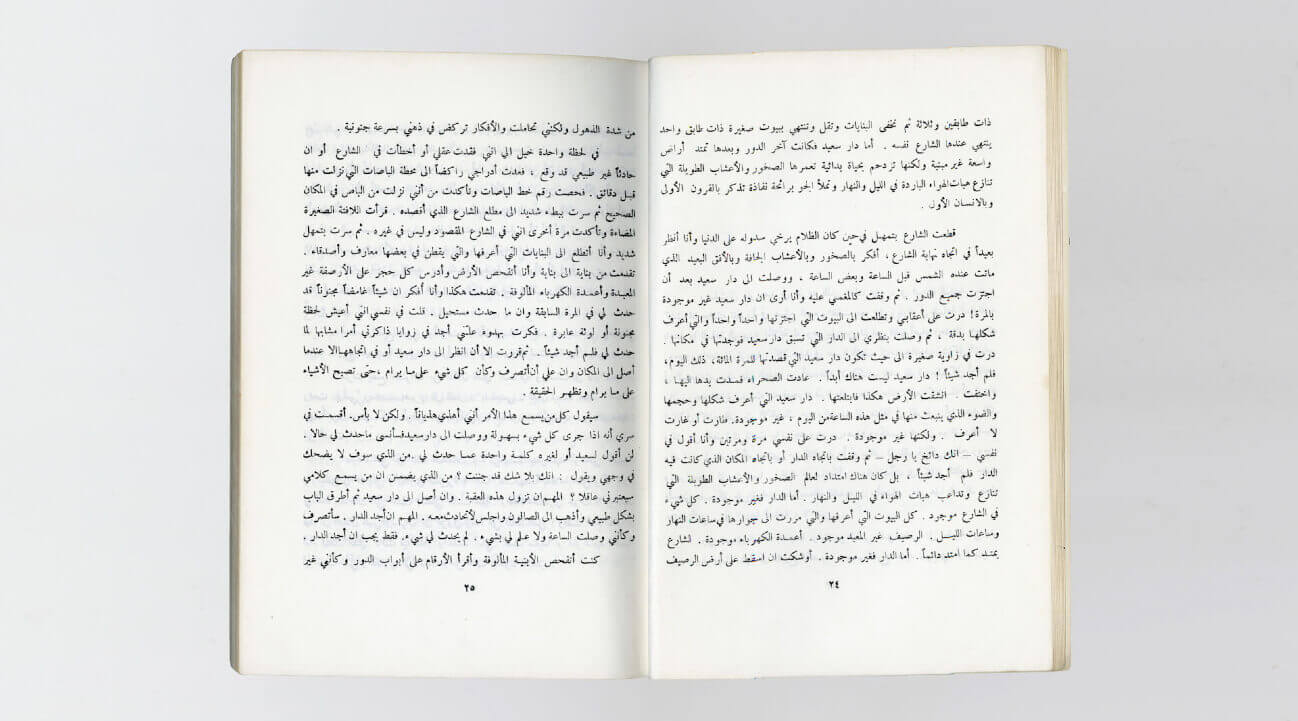 ذات طابقين وثلاثة ثم تختفي البنايات وتقل وتنتهي ببيوت صغيرة ذات طابق واحد
ينتهي عندها الشارع نفسه . أما دار سعيد فكانت آخر الدور وبعدها تمتد أراض
واسعة غير مبنية ولكنها تزدحم بحياة بدائية تعمرها الصخور والأعشاب الطويلة التي
تنازع هبات الهواء الباردة في الليل والنهار وتملأ الجو برائحة نفاذة تذكر بالقرون الأولى
وبالانسان الأول .
قطعت الشارع بتمهل في حين كان الظلام يرخي سدوله على الدنيا وأنا أنظر
بعيداً في اتجاه نهاية الشارع ، أفكر بالصخور وبالأعشاب الجافة وبالأفق البعيد الذي
ماتت عنده الشمس قبل الساعة وبعض الساعة ، ووصلت الى دار سعيد بعد أن
اجتزت جميع الدور . ثم وقفت كالمغمي عليه وأنا أرى ان دار سعيد غير موجودة
بالمرة ! درت على أعقابي وتطلعت الى البيوت التي اجتزتها واحداً واحداً والتي أعرف
شكلها بدقة ، ثم وصلت بنظري الى الدار التي تسبق دار سعيد فوجدتها في مكانها .
درت في زاوية صغيرة الى حيث تكون دار سعيد التي قصدتها للمرة المائة، ذلك اليوم،
فلم أجد شيئاً ! دار سعيد ليست هناك أبداً . عادت الصحراء فمدت يدها اليها ،
واختفت . انشقت الأرض هكذا فابتلعتها . دار سعيد التي أعرف شكلها وحجمها
والضوء الذي ينبعث منها في مثل هذه الساعة من اليوم ، غير موجودة. طارت أو غارت
لا أعرف . ولكنها غير موجودة . درت على نفسي مرة ومرتين وأنا أقول في
نفسي – انك دائخ يا رجل – ثم وقفت باتجاه الدار أو باتجاه المكان الذي كانت فيه
الدار فلم أجد شيئاً ، بل كان هناك امتداد لعالم الصخور والأعشاب الطويلة التي
تنازع وتداعب هبات الهواء في الليل والنهار . أما الدار فغير موجودة . كل شيء
في الشارع موجود . كل البيوت التي أعرفها والتي مررت الى جوارها في ساعات النهار
وساعات الليل . الرصيف غير المعبد موجود . أعمدة الكهرباء موجودة . لشارع
يمتد كما امتد دائماً . أما الدار فغير موجودة . أوشكت ان اسقط على أرض الرصيف
٢٤
من شدة الذهول ولكنني تحاملت والأفكار تركض في ذهني بسرعة جنونية .
في لحظة واحدة خيل الي انني فقدت عقلي أو أخطأت في الشارع أو ان
حادثاً غير طبيعي قد وقع ، فعدت أدراجي راكضاً الى محطة الباصات التي نزلت منها
قبل دقائق . فحصت رقم خط الباصات وتأكدت من أنني نزلت من الباص في المكان
الصحيح ثم سرت ببطء شديد الى مطلع الشارع الذي أقصده . قرأت اللافتة الصغيرة
المضاءة وتأكدت مرة أخرى انني في الشارع المقصود وليس في غيره . ثم سرت بتمهل
شديد وأنا أتطلع الى البنايات التي أعرفها والتي يقطن في بعضها معارف وأصدقاء .
تقدمت من بناية الى بناية وأنا أتفحص الأرض وأدرس كل حجر على الأرصفة غير
المعبدة وأعمدة الكهرباء المألوفة . تقدمت هكذا وأنا أفكر ان شيئاً غامضاً مجنوناً قد
حدث لي في المرة السابقة وان ما حدث مستحيل . قلت في نفسي انني أعيش لحظة
مجنونة أو لوثة عابرة . فكرت بهدوء علني أجد في زوايا ذاكرتي أمرا مشابها لما
حدث لي فلم أجد شيئاً . ثم قررت الا أن انظر الى دار سعيد أو في اتجاهها الا عندما
أصل الى المكان وان علي أن أتصرف وكأن كل شيء على ما يرام ، حتى تصبح الأشياء
على ما يرام وتظهر الحقيقة .
سيقول كل من يسمع هذا الأمر أنني أهذي هذياناً . ولكن لا بأس. أقسمت في
سري أنه اذا جرى كل شيء بسهولة ووصلت الى دار سعيد فسأنسى ما حدث لي حالا .
لن أقول لسعيد أو لغيره كلمة واحدة عما حدث لي . من الذي سوف لا يضحك
في وجهي ويقول : انك بلا شك قد جننت ؟ من الذي يضمن ان من يسمع كلامي
سيعتبرني عاقلا ؟ المهم ان تزول هذه العقبة . وان أصل الى دار سعيد ثم أطرق الباب
بشكل طبيعي وأذهب الى الصالون واجلس لأتحادث معه . المهم ان أجد الدار . سأتصرف
وكأنني وصلت الساعة ولا علم لي بشيء . لم يحدث لي شيء. فقط يجب ان أجد الدار .
كنت أتفحص الأبنية المألوفة وأقرأ الأرقام على أبواب الدور وكأنني غير
٢٥